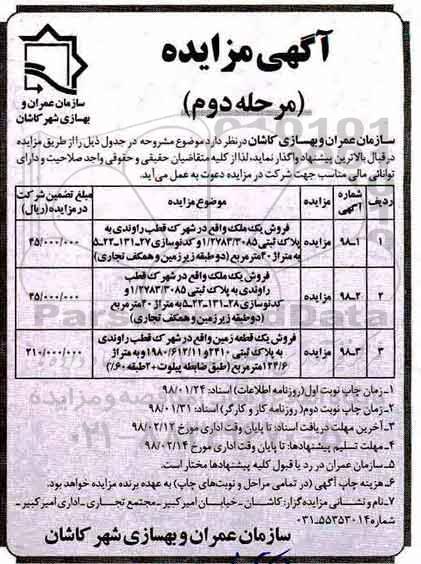 آگهی مزایده
(مرحله دوم)
سازمان عمران و
بهسازی شهر کاشان
سازمان عمران و بهسازی کاشان در نظر دارد موضوع مشروحه در جدول ذیل را از طریق مزایده
در قبال بالاترین پیشنهاد واگذار نماید، لذا از کلیه متقاضیان حقیقی و حقوقی واجد صلاحیت و دارای
توانائی مالی مناسب جهت شرکت در مزایده دعوت به عمل می آید.
ردیف شماره آگهی مزایده موضوع مزایده مبلغ تضمین شرکت در مزایده (ریال)
۱ ۹۸-۱ مزایده فروش یک ملک واقع در شهرک قطب راوندی به
پلاک ثبتی ۱/۲۷۸۳/۳۰۸۵ و کدنوسازی ۲۷-۱۳۱-۲۲-۵
به متراژ ۴۰ مترمربع (دو طبقه زیرزمین و همکف تجاری) ۴۵/۰۰۰/۰۰۰
۲ ۹۸-۲ مزایده فروش یک ملک واقع در شهرک قطب
راوندی به پلاک ثبتی ۱/۲۷۸۳/۳۰۸۵ و
کدنوسازی ۲۸-۱۳۱-۲۲-۵ به متراژ ۴۰ مترمربع
(دو طبقه زیرزمین و همکف تجاری) ۴۵/۰۰۰/۰۰۰
۳ ۹۸-۳ مزایده فروش یک قطعه زمین واقع در شهرک قطب راوندی
به پلاک ثبتی ۲۴۱۰ و ۱۹۸۰/۶۱۲/۱۱ و به متراژ
۱۲۴/۶ مترمربع (طبق ضابطه پیلوت+۲ طبقه ۶۰٪) ۲۱۰/۰۰۰/۰۰۰
۱-زمان چاپ نوبت اول (روزنامه اطلاعات) اسناد: ۹۸/۰۱/۲۴
۲-زمان چاپ نوبت دوم (روزنامه کار و کارگر) اسناد: ۹۸/۰۱/۳۱
۳-آخرین مهلت دریافت اسناد: تا پایان وقت اداری مورخ ۹۸/۰۲/۱۲
۴-مهلت تسلیم پیشنهادها: تا پایان وقت اداری مورخ ۹۸/۰۲/۱۴
۵-سازمان عمران در رد یا قبول کلیه پیشنهادها مختار است.
۶-هزینه چاپ آگهی (در تمامی مراحل و نوبت‌های چاپ) به عهده برنده مزایده خواهد بود.
۷-نام و نشانی مزایده گزار: کاشان-خیابان امیرکبیر-مجتمع تجاری-اداری امیرکبیر-
شماره ۵۵۳۵۳۰۱۴-۰۳۱
سازمان عمران و بهسازی شهر کاشان